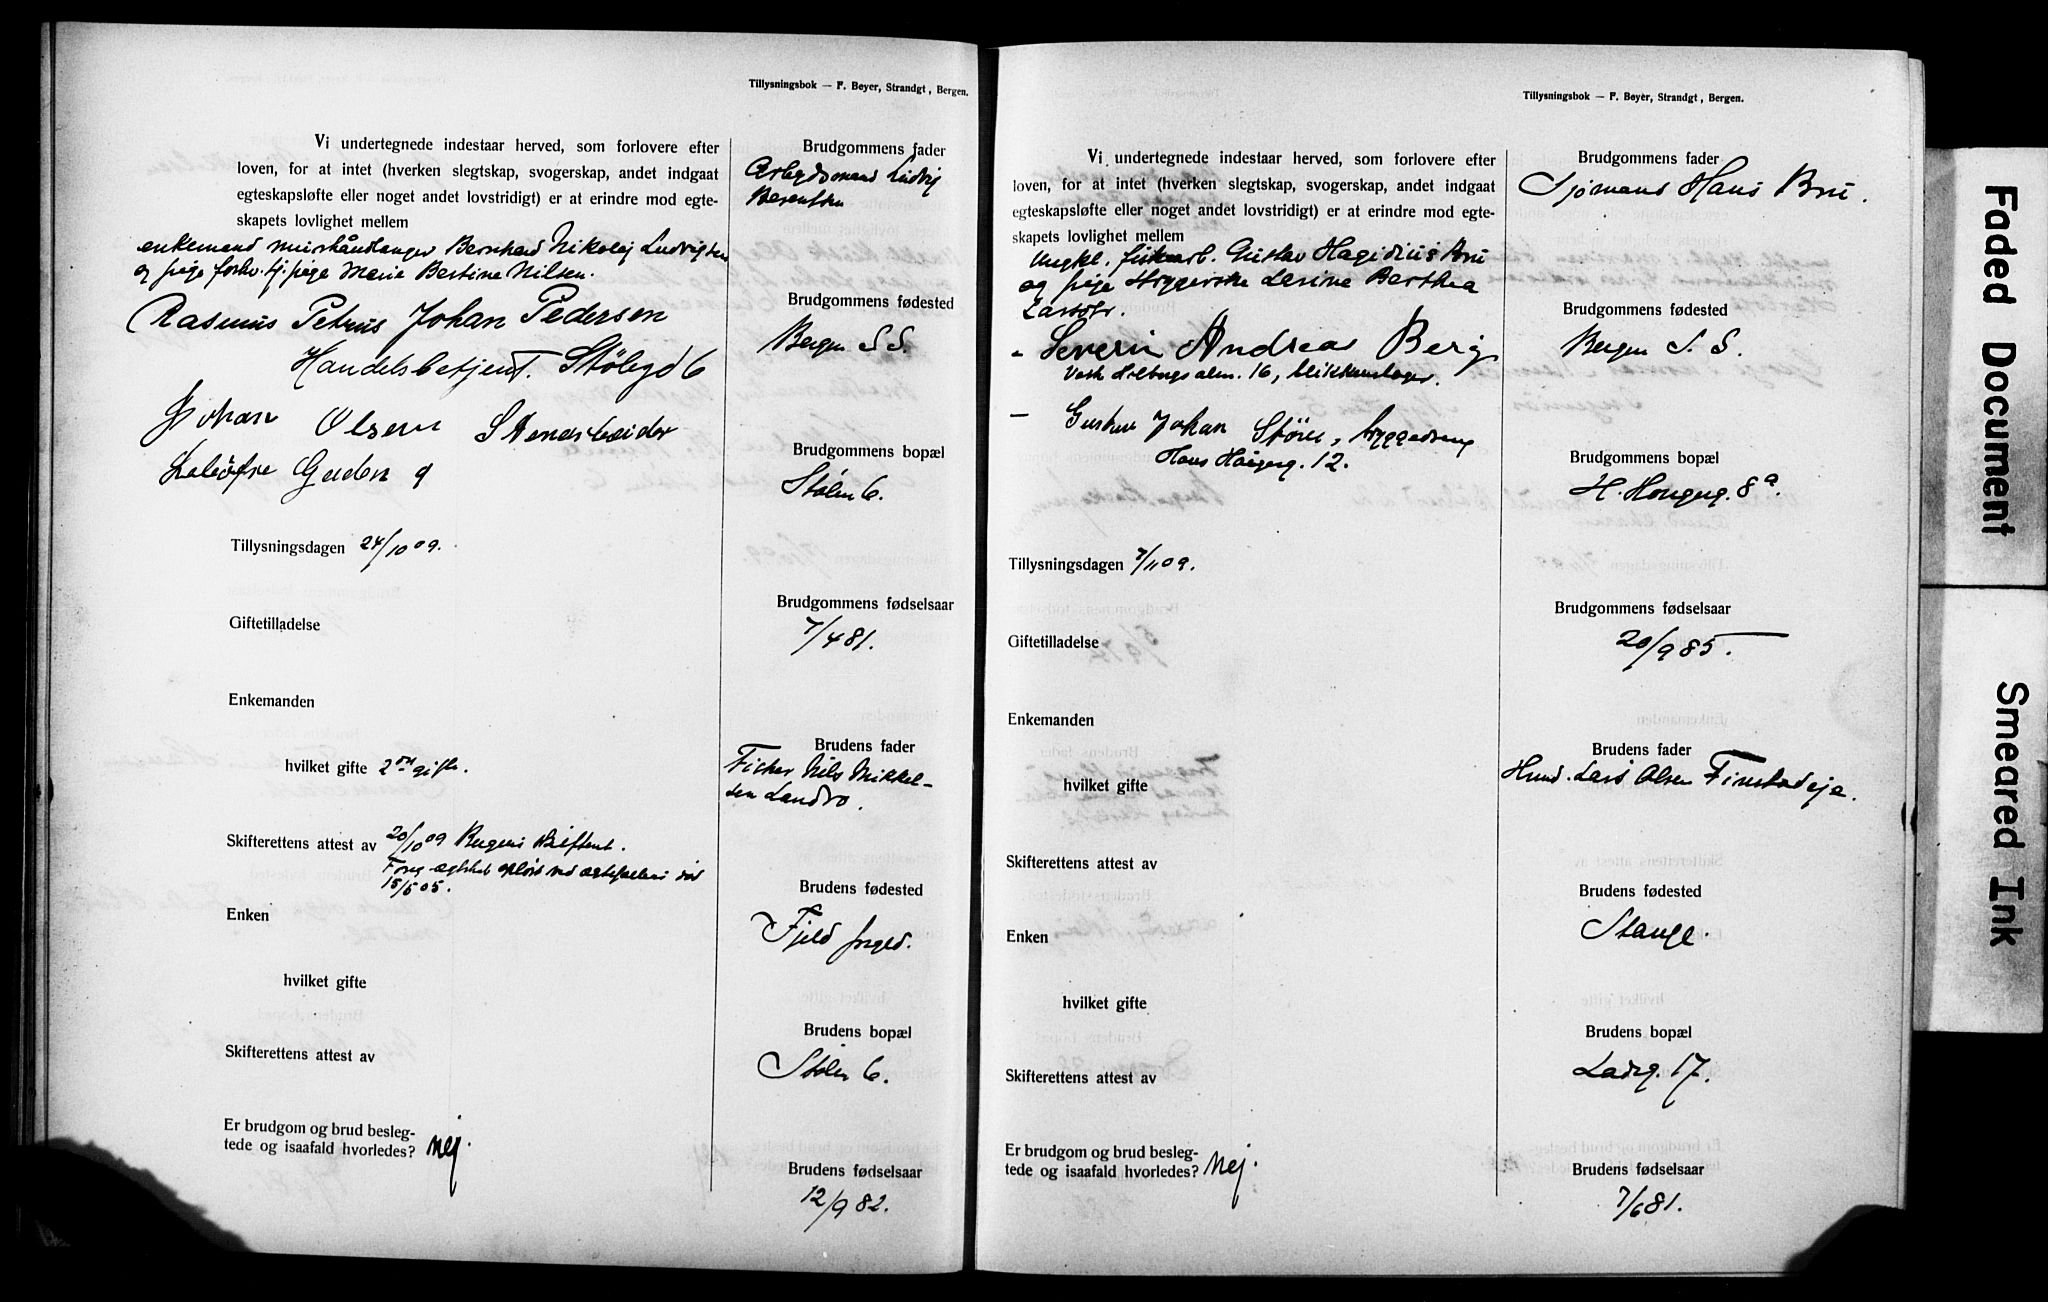 Tillysningsbok — F. Beyer, Strandgt, Bergen.
Vi undertegnede indestaar herved, som forlovere efter
loven, for at intet (hverken slegtskap, svogerskap, andet indgaat
egteskapsløfte eller noget andet lovstridigt) er at erindre mod egte-
skapets lovlighet mellem
enkemand murhåndlanger Bernhard Nikolej Ludvigsen
og pige forhv. tj. pige Marie Bertine Nilsen.
Rasmus Petrus Johan Pedersen
Handelsbetjent. Stölegd 6
Johan Olsen Stenarbeider
Gaden 9
Tillysningsdagen 24/10 09.
Giftetilladelse
Enkemanden
hvilket gifte 2det gifte.
Skifterettens attest av 20/10 09 Bergens skifteret.
Forrig egteskab opløst ved død
15/5 05.
Enken
hvilket gifte
Skifterettens attest av
Er brudgom og brud besleg-
tede og isaafald hvorledes? Nej.
Brudgommens fader
Arbeidsmand Ludvig
Berentsen
Brudgommens fødested
Bergen S. S.
Brudgommens bopæl
Stølen 6.
Brudgommens fødselsaar
7/4 81.
Brudens fader
Fisker Nils Mikkel-
sen Landro.
Brudens fødested
Fjeld prgld.
Brudens bopæl
Stølen 6.
Brudens fødselsaar
12/9 82.
Tillysningsbok — F. Beyer, Strandgt, Bergen.
Vi undertegnede indestaar herved, som forlovere efter
loven, for at intet (hverken slegtskap, svogerskap, andet indgaat
egteskapsløfte eller noget andet lovstridigt) er at erindre mod egte-
skapets lovlighet mellem
Ungkl. Gustav Hagidius Bru
og pige Lesine Barthea
Larsdtr.
Severin Andreas Berg
Vestre Holbergs alm. 16, blikkenslager.
Gustav Johan Störe, bryggedreng
Haugerg. 12.
Tillysningsdagen 7/11 09.
Giftetilladelse
Enkemanden
hvilket gifte
Skifterettens attest av
Enken
hvilket gifte
Skifterettens attest av
Er brudgom og brud besleg-
tede og isaafald hvorledes? Nej.
Brudgommens fader
Sjømand Hans Bru.
Brudgommens fødested
Bergen S. S.
Brudgommens bopæl
H. Haugerg. 8a.
Brudgommens fødselsaar
20/9 85.
Brudens fader
Husmd. Lars Olsen Finstadeje.
Brudens fødested
Stange.
Brudens bopæl
Ladeg. 17.
Brudens fødselsaar
7/6 81.
Faded Document
Smeared Ink